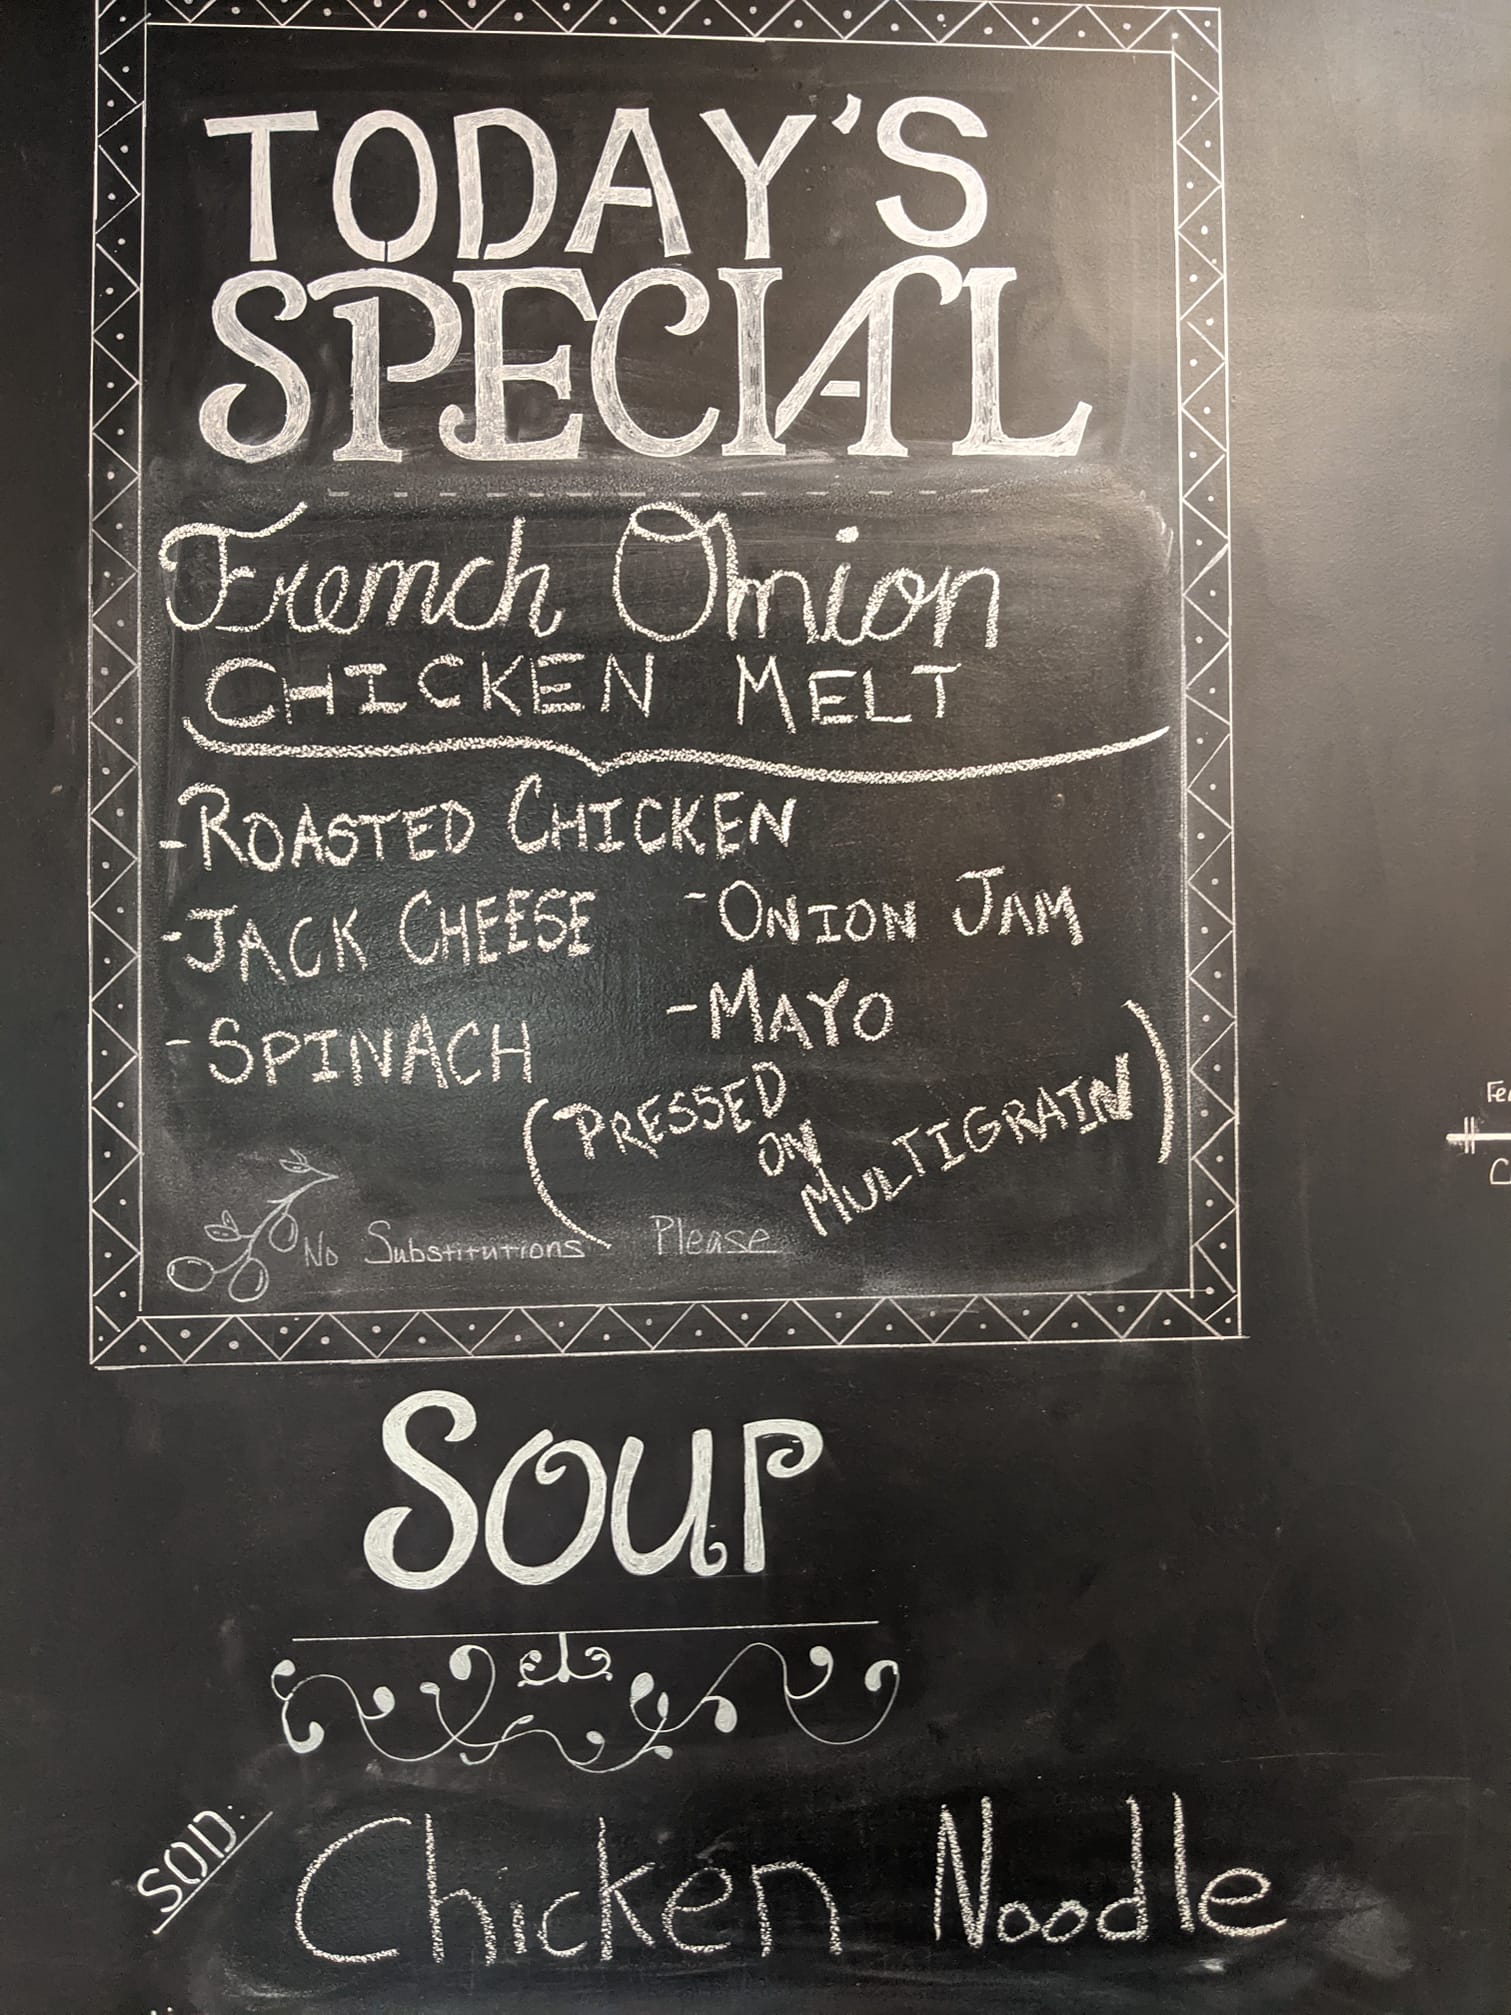 TODAY'S
SPECIAL
French Onion
CHICKEN MELT
- ROASTED CHICKEN
- JACK CHEESE - ONION JAM
- SPINACH - MAYO
(PRESSED
ON
MULTIGRAIN)
No Substitutions Please
SOUP
SOD:
Chicken Noodle